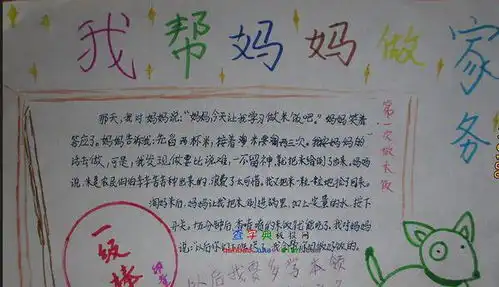 我帮妈妈做家务
第一次做大饭
那天,我对妈妈说:“妈妈今天让我学习做米饭吧。”妈妈笑着
答应了。妈妈告诉我:先舀两杯米,接着淘米要淘两三次。我按妈妈的
话去做,可是,我发现,做要比说难,一不留神就把米给倒了出来。妈妈
说,米是农民伯伯辛辛苦苦种出来的,浪费了太可惜。我又把米一粒一粒地捡了回来。
淘好米后,妈妈让我把米倒进锅里,加上定量的水,按下
开关,
分钟后,香喷喷的米饭就能吃了。我对妈妈
说:以后
以后我要多学本领
一级棒
查字典